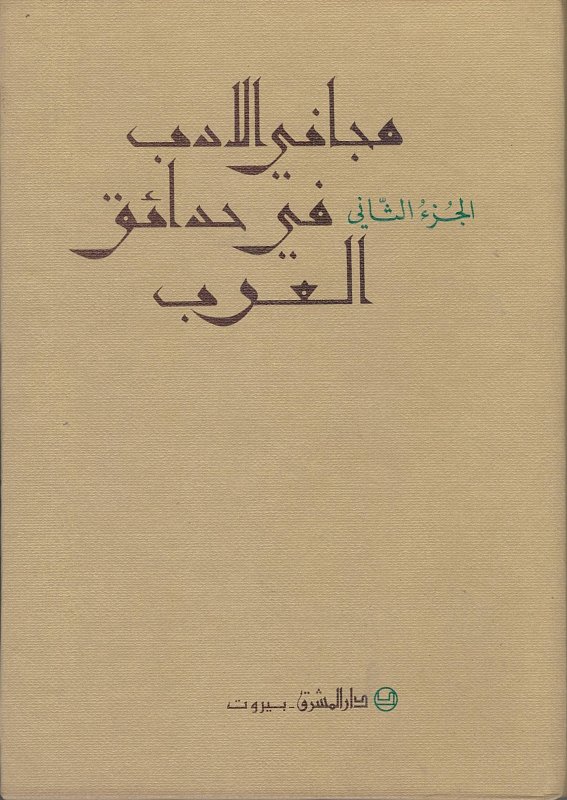 مجاني الادب
في حدائق
العرب
الجُزءُ الثّاني
دار المشرق - بيروت